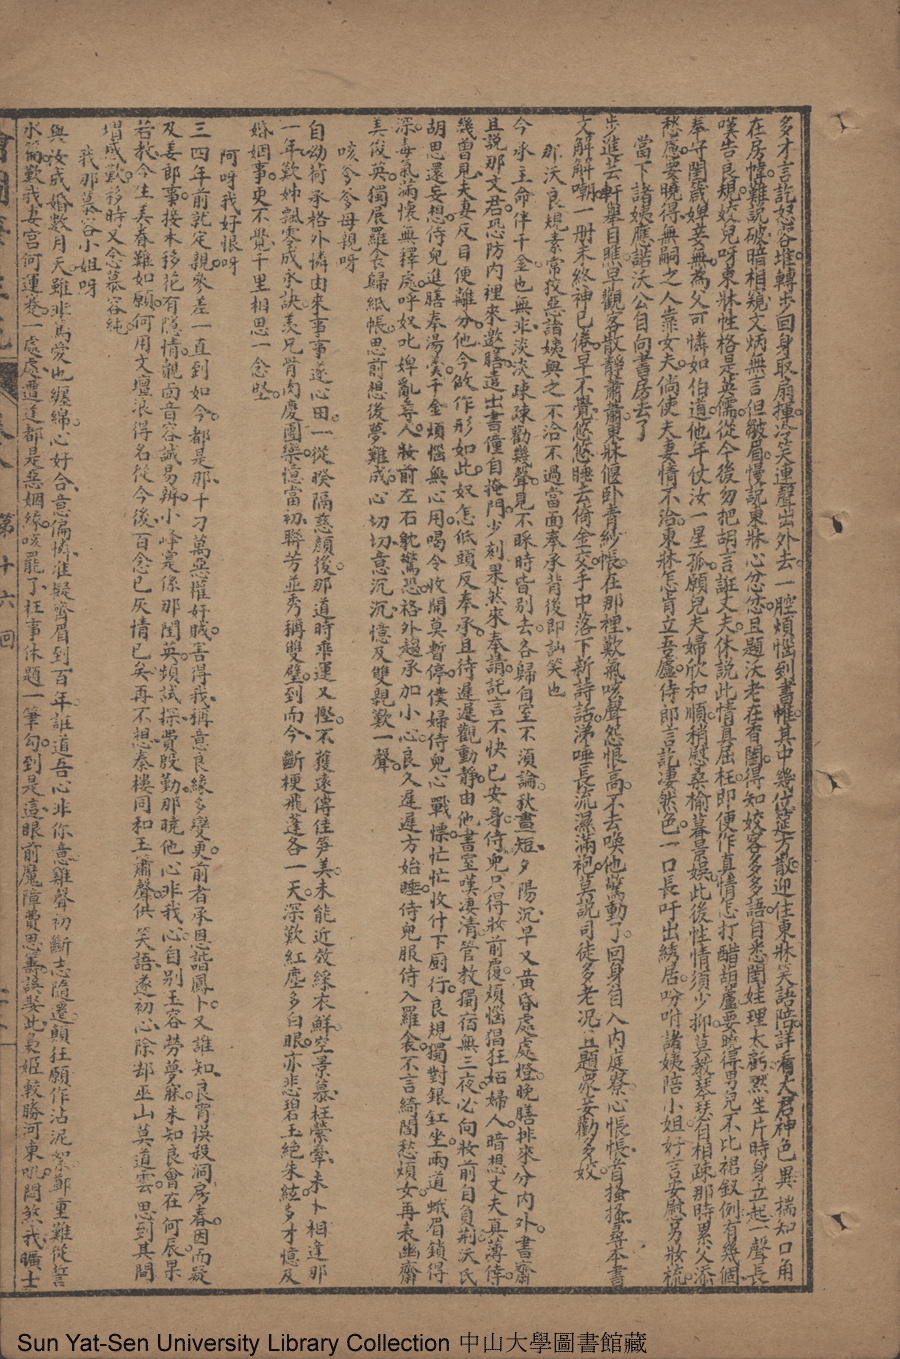 多才言訖怒容堆轉步回身取扇揮冷笑連聲出外去一腔煩惱到書帷其中幾位筵方散迎住東牀笑語陪詳看大君神色異揣知口角
在房幃難說破暗相窺文炳無言但皺眉慢說東牀心忿忿且題沃老在香閨得知姣客多多語自悉閨娃理太虧然生片時身立起一聲長
嘆告良規姣兒呀東牀性格是英儒從今後勿把胡言誑丈夫休說此情真屈枉即便作真情怎打醋葫蘆要曉得男兒不比裙釵例有幾個
奉守閨箴婢妾無為父可憐如伯道他年仗汝一星孤願兒夫婦欣和順稍慰桑榆暮景娛此後性情須少抑莫教琴瑟有相疎那時累父添
愁慮要曉得無嗣之人靠女夫倘使夫妻情不洽東牀怎肯立吾廬侍郎言訖凄然色一口長吁出綉居吩咐諸姨陪小姐好言安慰另妝梳
當下諸姨應諾沃公自向書房去了
步進芸軒舉目瞧早觀客散靜蕭蕭東牀偃臥青紗帳在那裡歎氣咳聲怨恨高不去喚他驚動了回身自入內庭寮心悵悵首搔搔尋本書
文解解嘲一冊未終神已倦早不覺悠悠睡去倚金交手中落下新詩話涕唾長流濕滿袍莫說司徒多老况且題眾妾勸多姣
那沃良規素常狡惡諸姨與之不洽不過當面奉承背後即訕笑也
今承主命伴千金也無非淡淡疎疎勸幾聲見不睬時皆別去各歸自室不須論秋晝短夕陽沉早又黃昏處處燈晚膳排來分內外書齋
且說那文君恐防內裡來數膳遣出書僮自掩門少刻果然來奉請託言不快已安身侍兒只得妝前覆煩惱猖狂妬婦人暗想丈夫真薄倖
幾曾見夫妻反目便離分他今做作形如此奴怎低頭反奉承且待遲遲觀動靜由他書室嘆凄清管教獨宿無三夜必向妝前自負荊沃氏
胡思還妄想侍兒進膳奉湯羹千金煩惱無心用喝令收開莫暫停僕婦侍兒心戰慄忙忙收什下厨行良規獨對銀釭坐兩道蛾眉鎖得
深毒氣滿懷無釋處呼奴叱婢亂尋人妝前左右躭驚恐格外趨承加小心良久遲遲方始睡侍兒服侍入羅衾不言綺閣愁煩女再表幽齋
美俊英獨展羅衾歸紙帳思前想後夢難成心切切意沉沉憶及雙親歎一聲
咳爷爷母親呀
自幼荷承格外憐由來事事遂心田一從暌隔慈顏後那道時乖運又慳不獲遠傳佳笋美未能近效綵衣鮮空景慕枉縈牽未卜相逢那
一年歎姊飄零成永訣羨兄骨肉慶團欒憶當初聯芳並秀稱雙璧到而今斷梗飛蓬各一天深歎紅塵多白眼亦悲碧玉絕朱絃多才憶及
婚姻事更不覺千里相思一念堅
阿呀我好恨呀
三四年前就定親參差一直到如今都是那千刁萬惡權奸賊害得我稱意良緣多變更前者承恩諧鳳卜又誰知良宵悞殺洞房春因而疑
及姜郎事接木移花有隱情覿面音容誠易辨小峰寔係那閨英頻試探費殷勤那曉他心非我心自別玉容勞夢寐未知良會在何辰果
若教今生美眷難如願何用文壇浪得名從今後百念已灰情已矣再不想秦樓同和玉簫聲供笑語遂初心除却巫山莫道雲思到其間
增感歎移時又念慕容純
我那慕容小姐呀
與汝成婚數月天雖非寫愛也纏綿心好合意偏憐准擬齊眉到百年誰道吾心非你意雞聲初斷志隨遷顛狂願作沾泥絮鄭重難從誓
水篇歎我妻宮何運蹇一處處遭逢都是惡姻緣咳罷了枉事休題一筆勾到是這眼前魔障費思籌誤娶此夷姬較勝河東吼悶煞我曠士
第十六回
Sun Yat-Sen University Library Collection 中山大學圖書館藏